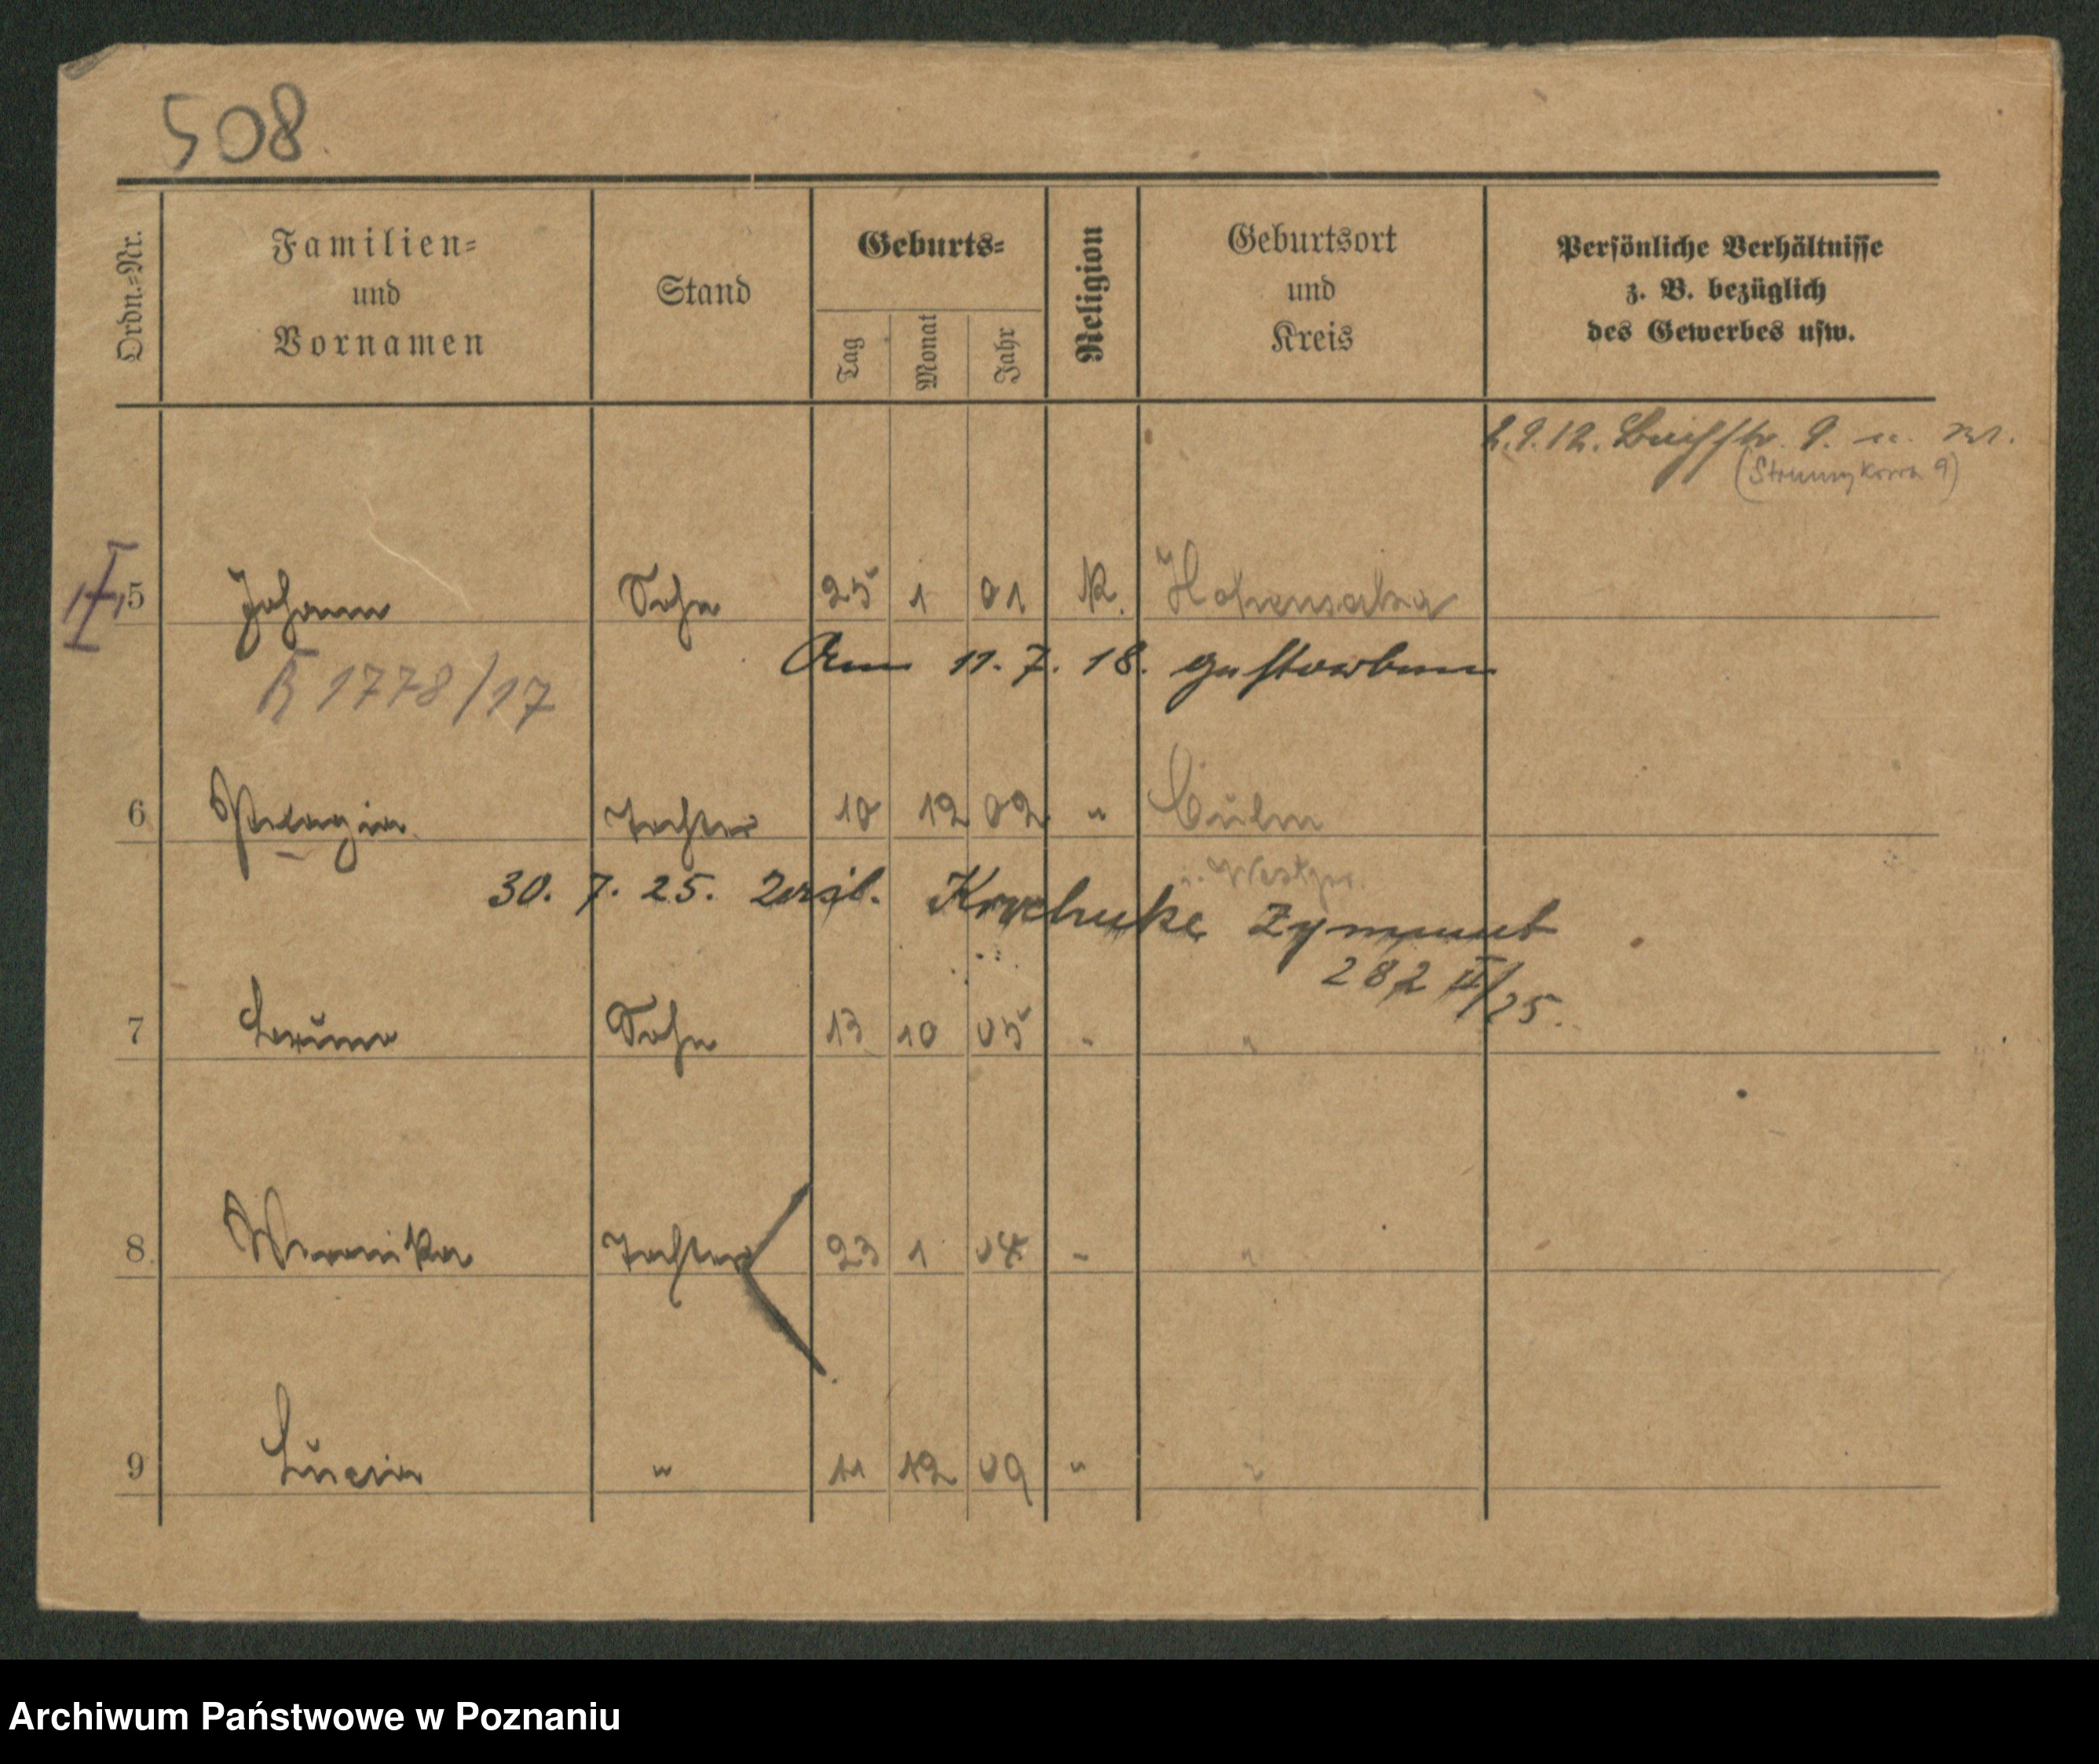 508
Ordn.=Nr.
Familien=
und
Vornamen
Stand
Geburts=
Tag
Monat
Jahr
Religion
Geburtsort
und
Kreis
Persönliche Verhältnisse
z. B. bezüglich
des Gewerbes usw.
2.9.12. 9.
9)
5 Johann Sohn 25 1 01 K. Hohensalza
Am 11. 7. 18. gestorben
1778/17
6 Pelagia Tochter 10 12 02 " Culm
Westpr.
30. 7. 25. Zymunt
282 II/25.
7 Bruno Sohn 13 10 05 " "
8 Weronika Tochter 23 1 04 " "
9 Lucia " 11 12 09 " "
Archiwum Państwowe w Poznaniu